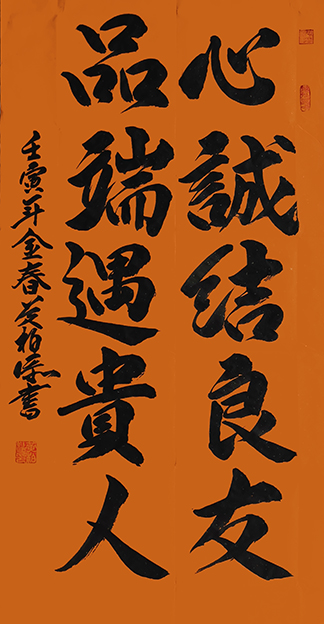 心誠结良友
品端遇貴人
壬寅年金春黄柏霖書